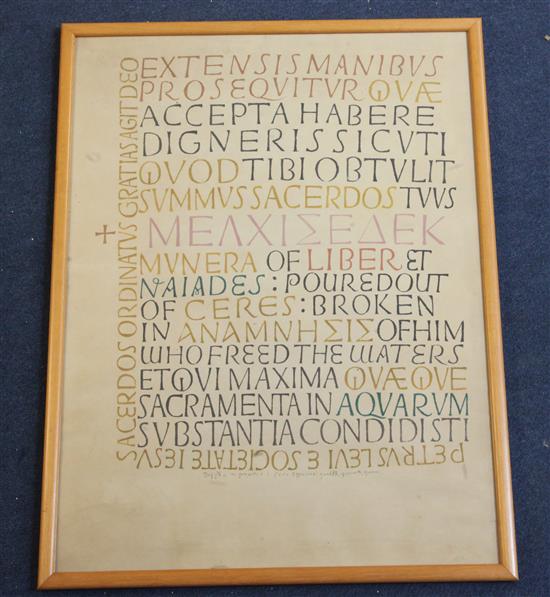 EXTENSIS MANIBVS
PROSEQUITVR QVÆ
ACCEPTA HABERE
DIGNERIS SICVTI
QVOD TIBI OBTVLIT
SVMMVS SACERDOS TVVS
ΜΕΛΧΙΣΕΔΕΚ
MVNERA OF LIBER ET
NAIADES : POURED OUT
OF CERES : BROKEN
IN ΑΝΑΜΝΗΣΙΣ OF HIM
WHO FREED THE WATERS
ET QVI MAXIMA QVÆQVE
SACRAMENTA IN AQVARVM
SVBSTANTIA CONDIDISTI
PETRVS LEVI E SOCIETATE IESVS
SACERDOS ORDINATVS GRATIAS AGIT DEO